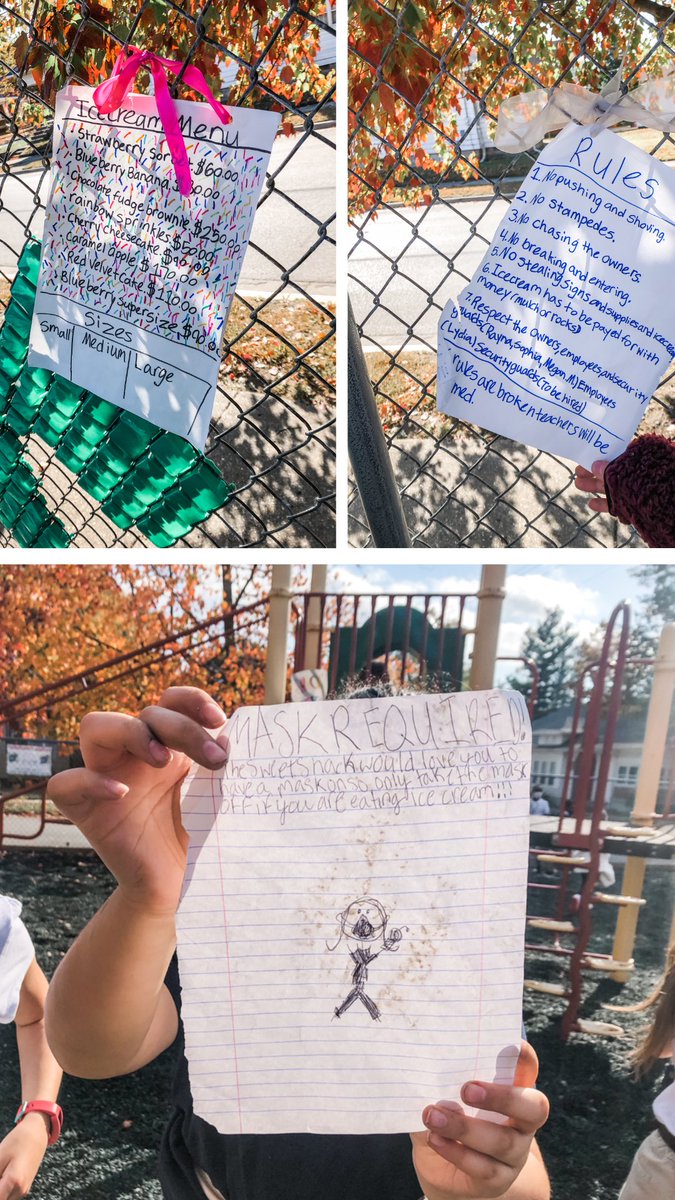 Icecream Menu
• Strawberry, Sorbet $60.00
• Blueberry Banana, $00.00
• Chocolate fudge brownie $250.00
• rainbow sprinkles $50.00
• Cherry cheesecake
• Caramel apple $170.00
• Red Velvet cake $110.00
• Blueberry supersize
Sizes
Small Medium Large
Rules
1. No pushing and shoving.
2. No stampedes.
3. No chasing the owners.
4. No breaking and entering.
5. No stealing signs and supplies and icecream
6. Icecream has to be payed for with
money (mulch or rocks)
7. Respect the owners, employees, and security
guards (Rayna, Sophia, Megan. M) Employees
(Lydia) Security guards (to be hired)
rules are broken teachers will be
med.
MASK REQUIRED!
The Sweet Shack would love you to
have a mask on so only take the mask
off if you are eating ice cream!!!